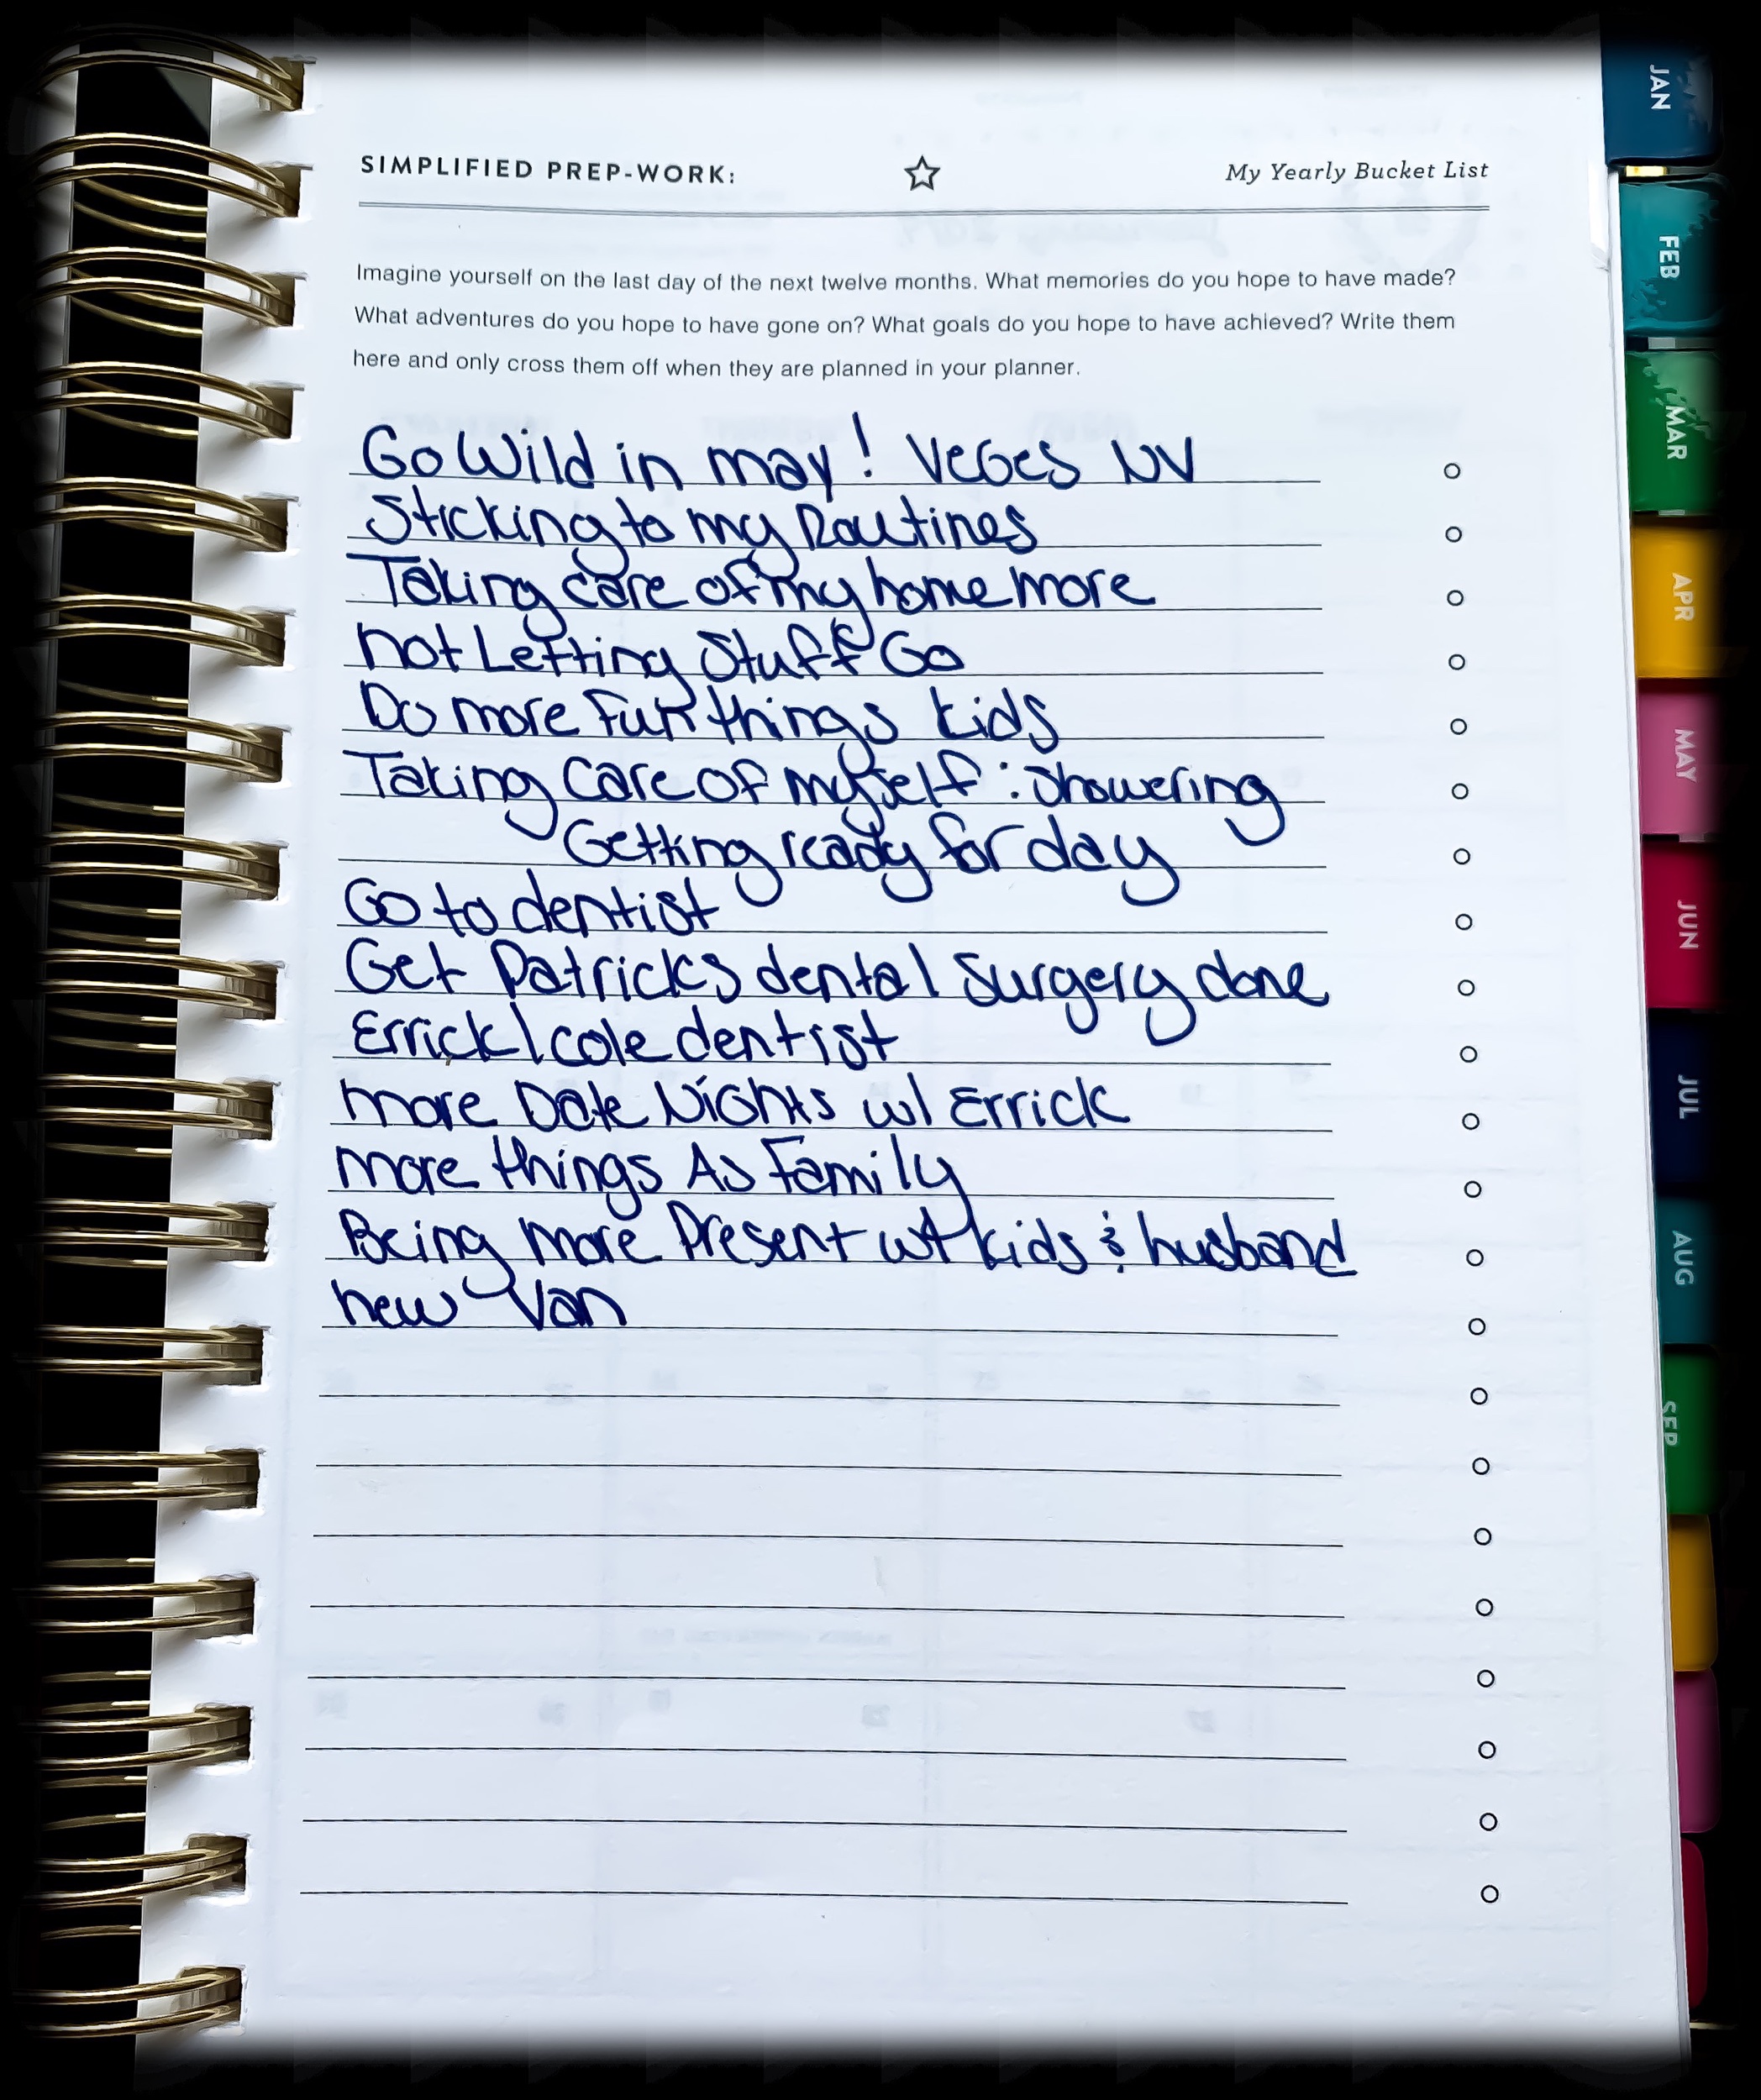 SIMPLIFIED PREP-WORK: My Yearly Bucket List
Imagine yourself on the last day of the next twelve months. What memories do you hope to have made?
What adventures do you hope to have gone on? What goals do you hope to have achieved? Write them
here and only cross them off when they are planned in your planner.
Go Wild in may! Veges NV
Sticking to my Routines
Taking care of my home more
not Letting Stuff Go
Do more Fun things kids
Taking Care of myself : Showering
Getting ready for day
Go to dentist
Get Patricks dental Surgery done
Errick | cole dentist
more Date Nights w/ Errick
more things As Family
Being more Present wt kids & husband
new Van
JAN
FEB
MAR
APR
MAY
JUN
JUL
AUG
SEP